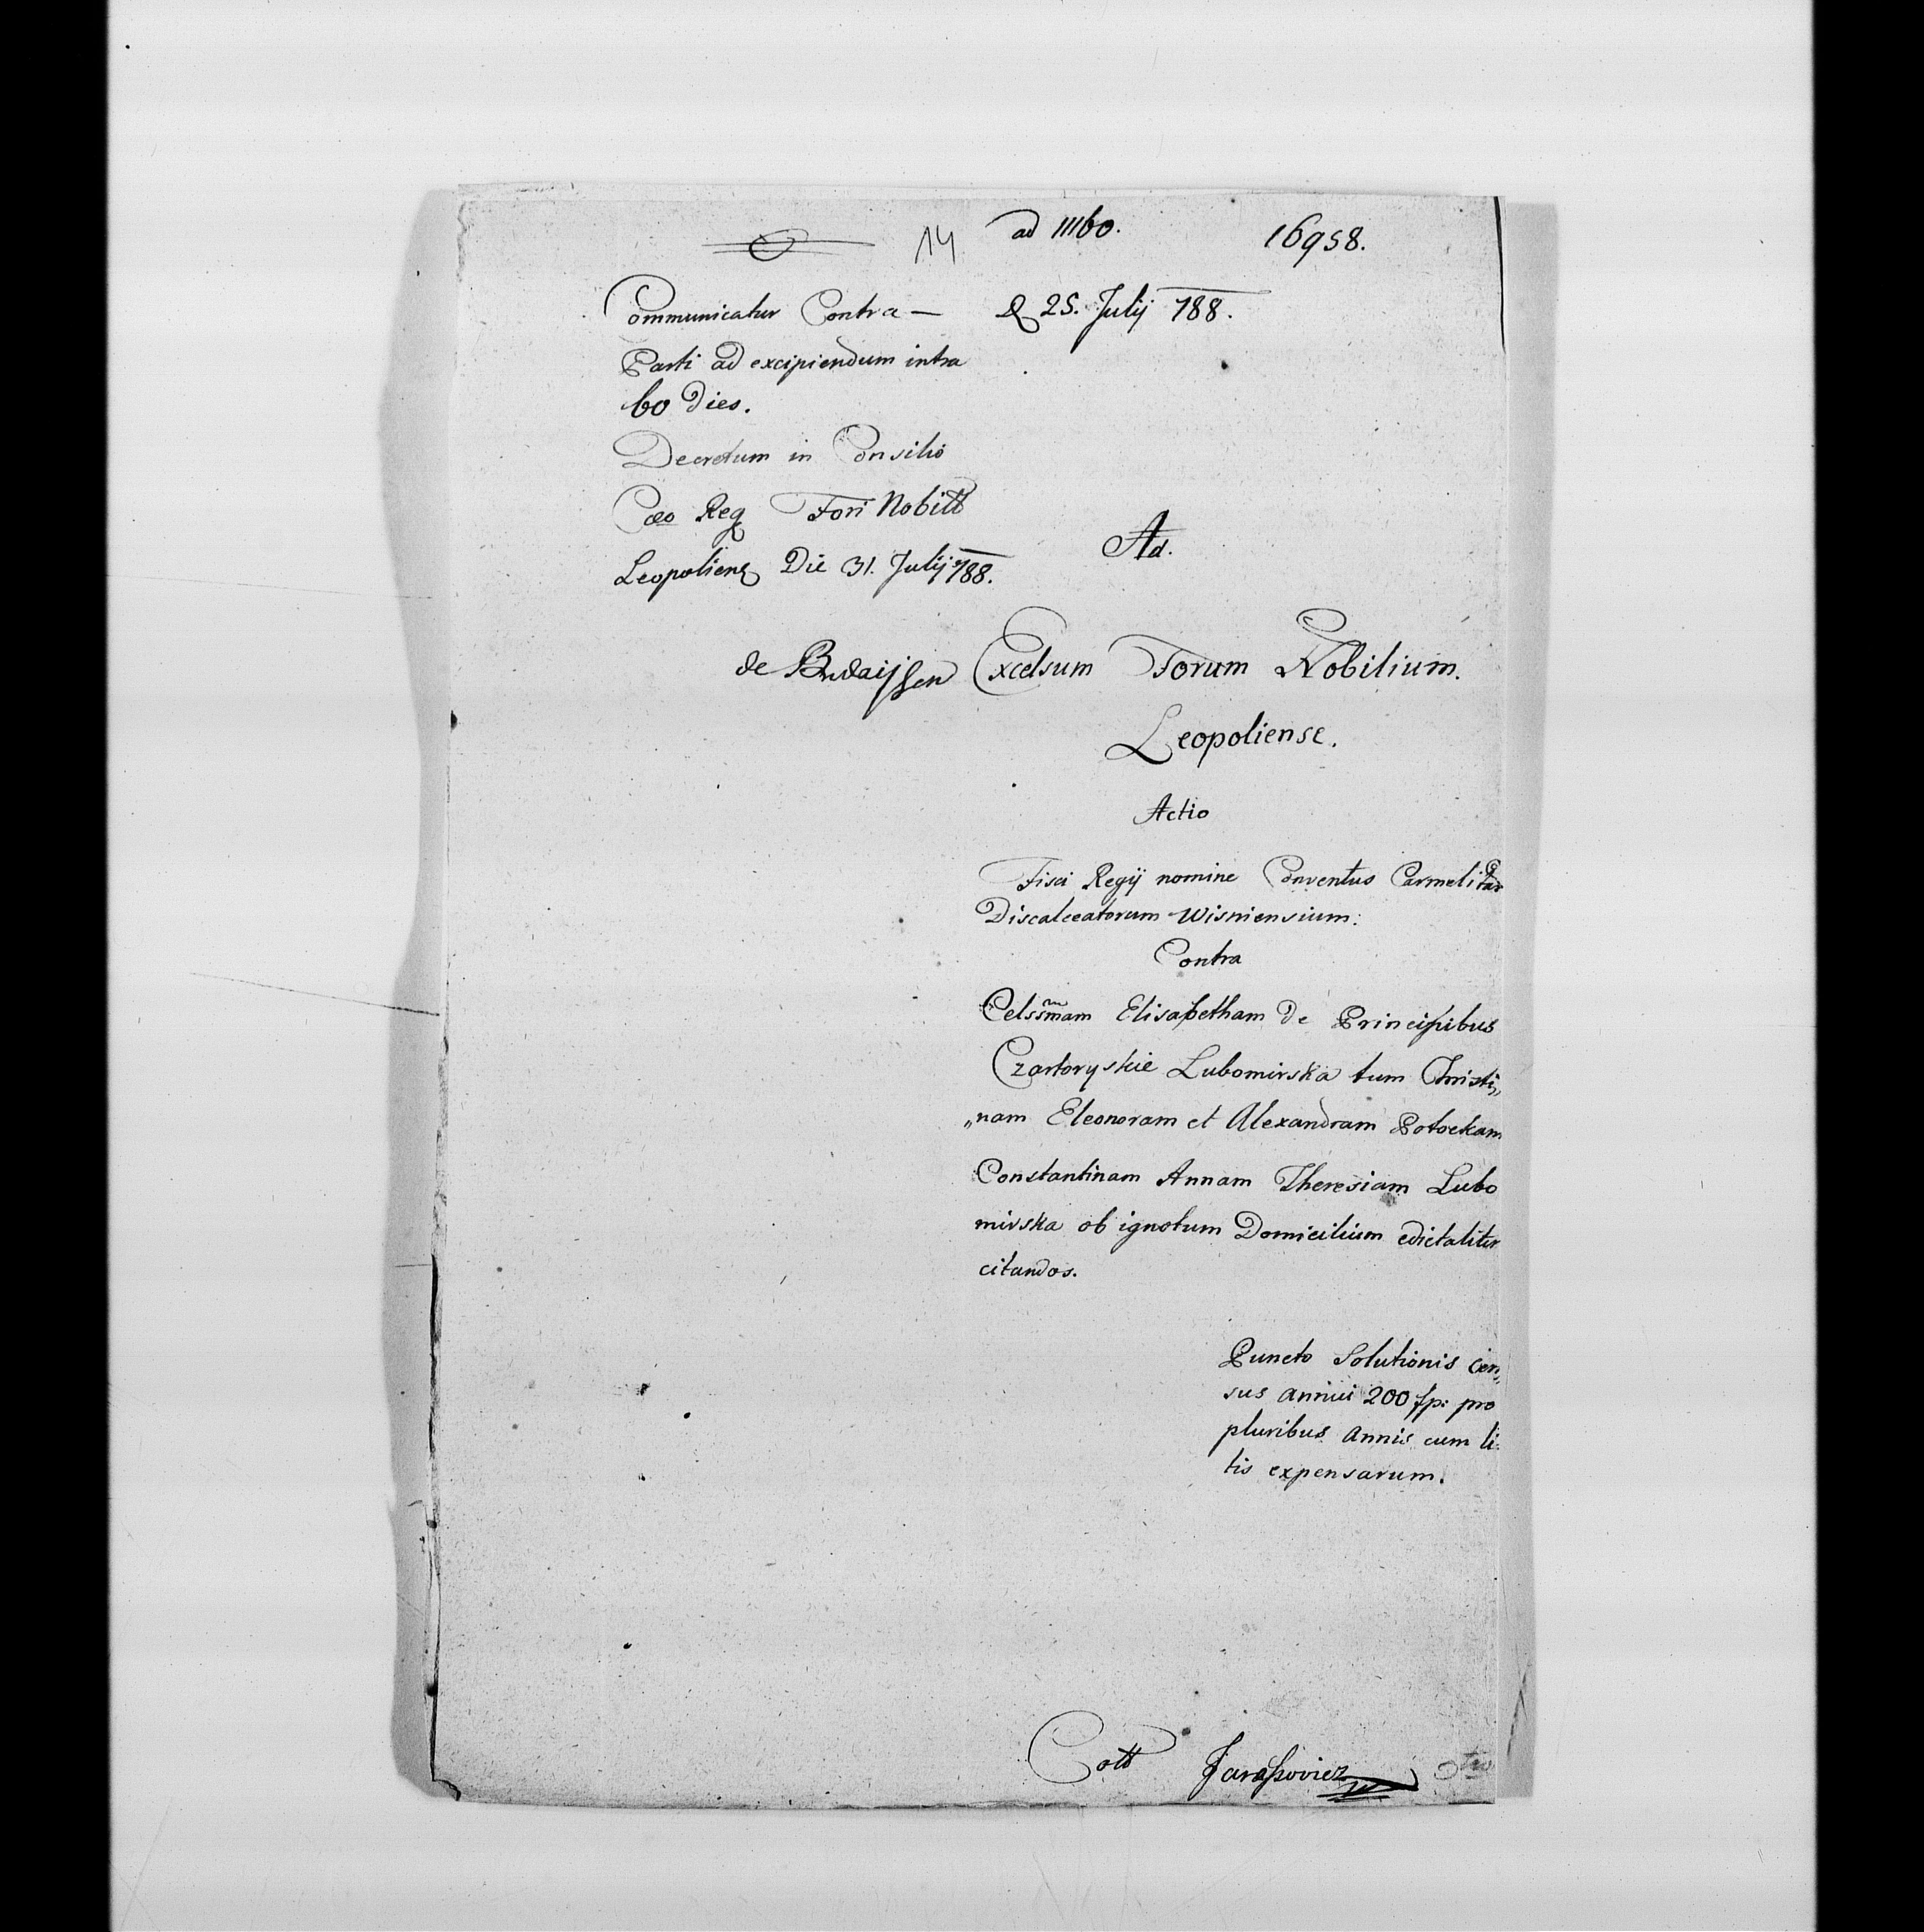 14
ad 11160.
16958.
Communicatur Contra—
Parti ad excipiendum intra
60 Dies.
Decretum in Consilio
Caeo Reg Fori Nobill
Leopoliens Die 31. Julij 788.
25. Julij 788.
Ad.
de
Excelsum Forum Nobilium.
Leopoliense.
Actio
Fisci Regij nomine Conventus Carmelitar
Discalceatorum Wisniensium:
Contra
Celssmam Elisabetham de Principibus
Czartoryskie Lubomirska tum Christi„
„nam Eleonoram et Alexandram Potockam
Constantinam Annam Theresiam Lubo
mirska ob ignotum Domicilium edictaliter
citandos.
Puncto Solutionis cen„
sus annui 200 fp: pro
pluribus Annis cum li„
tis expensarum.
Coll